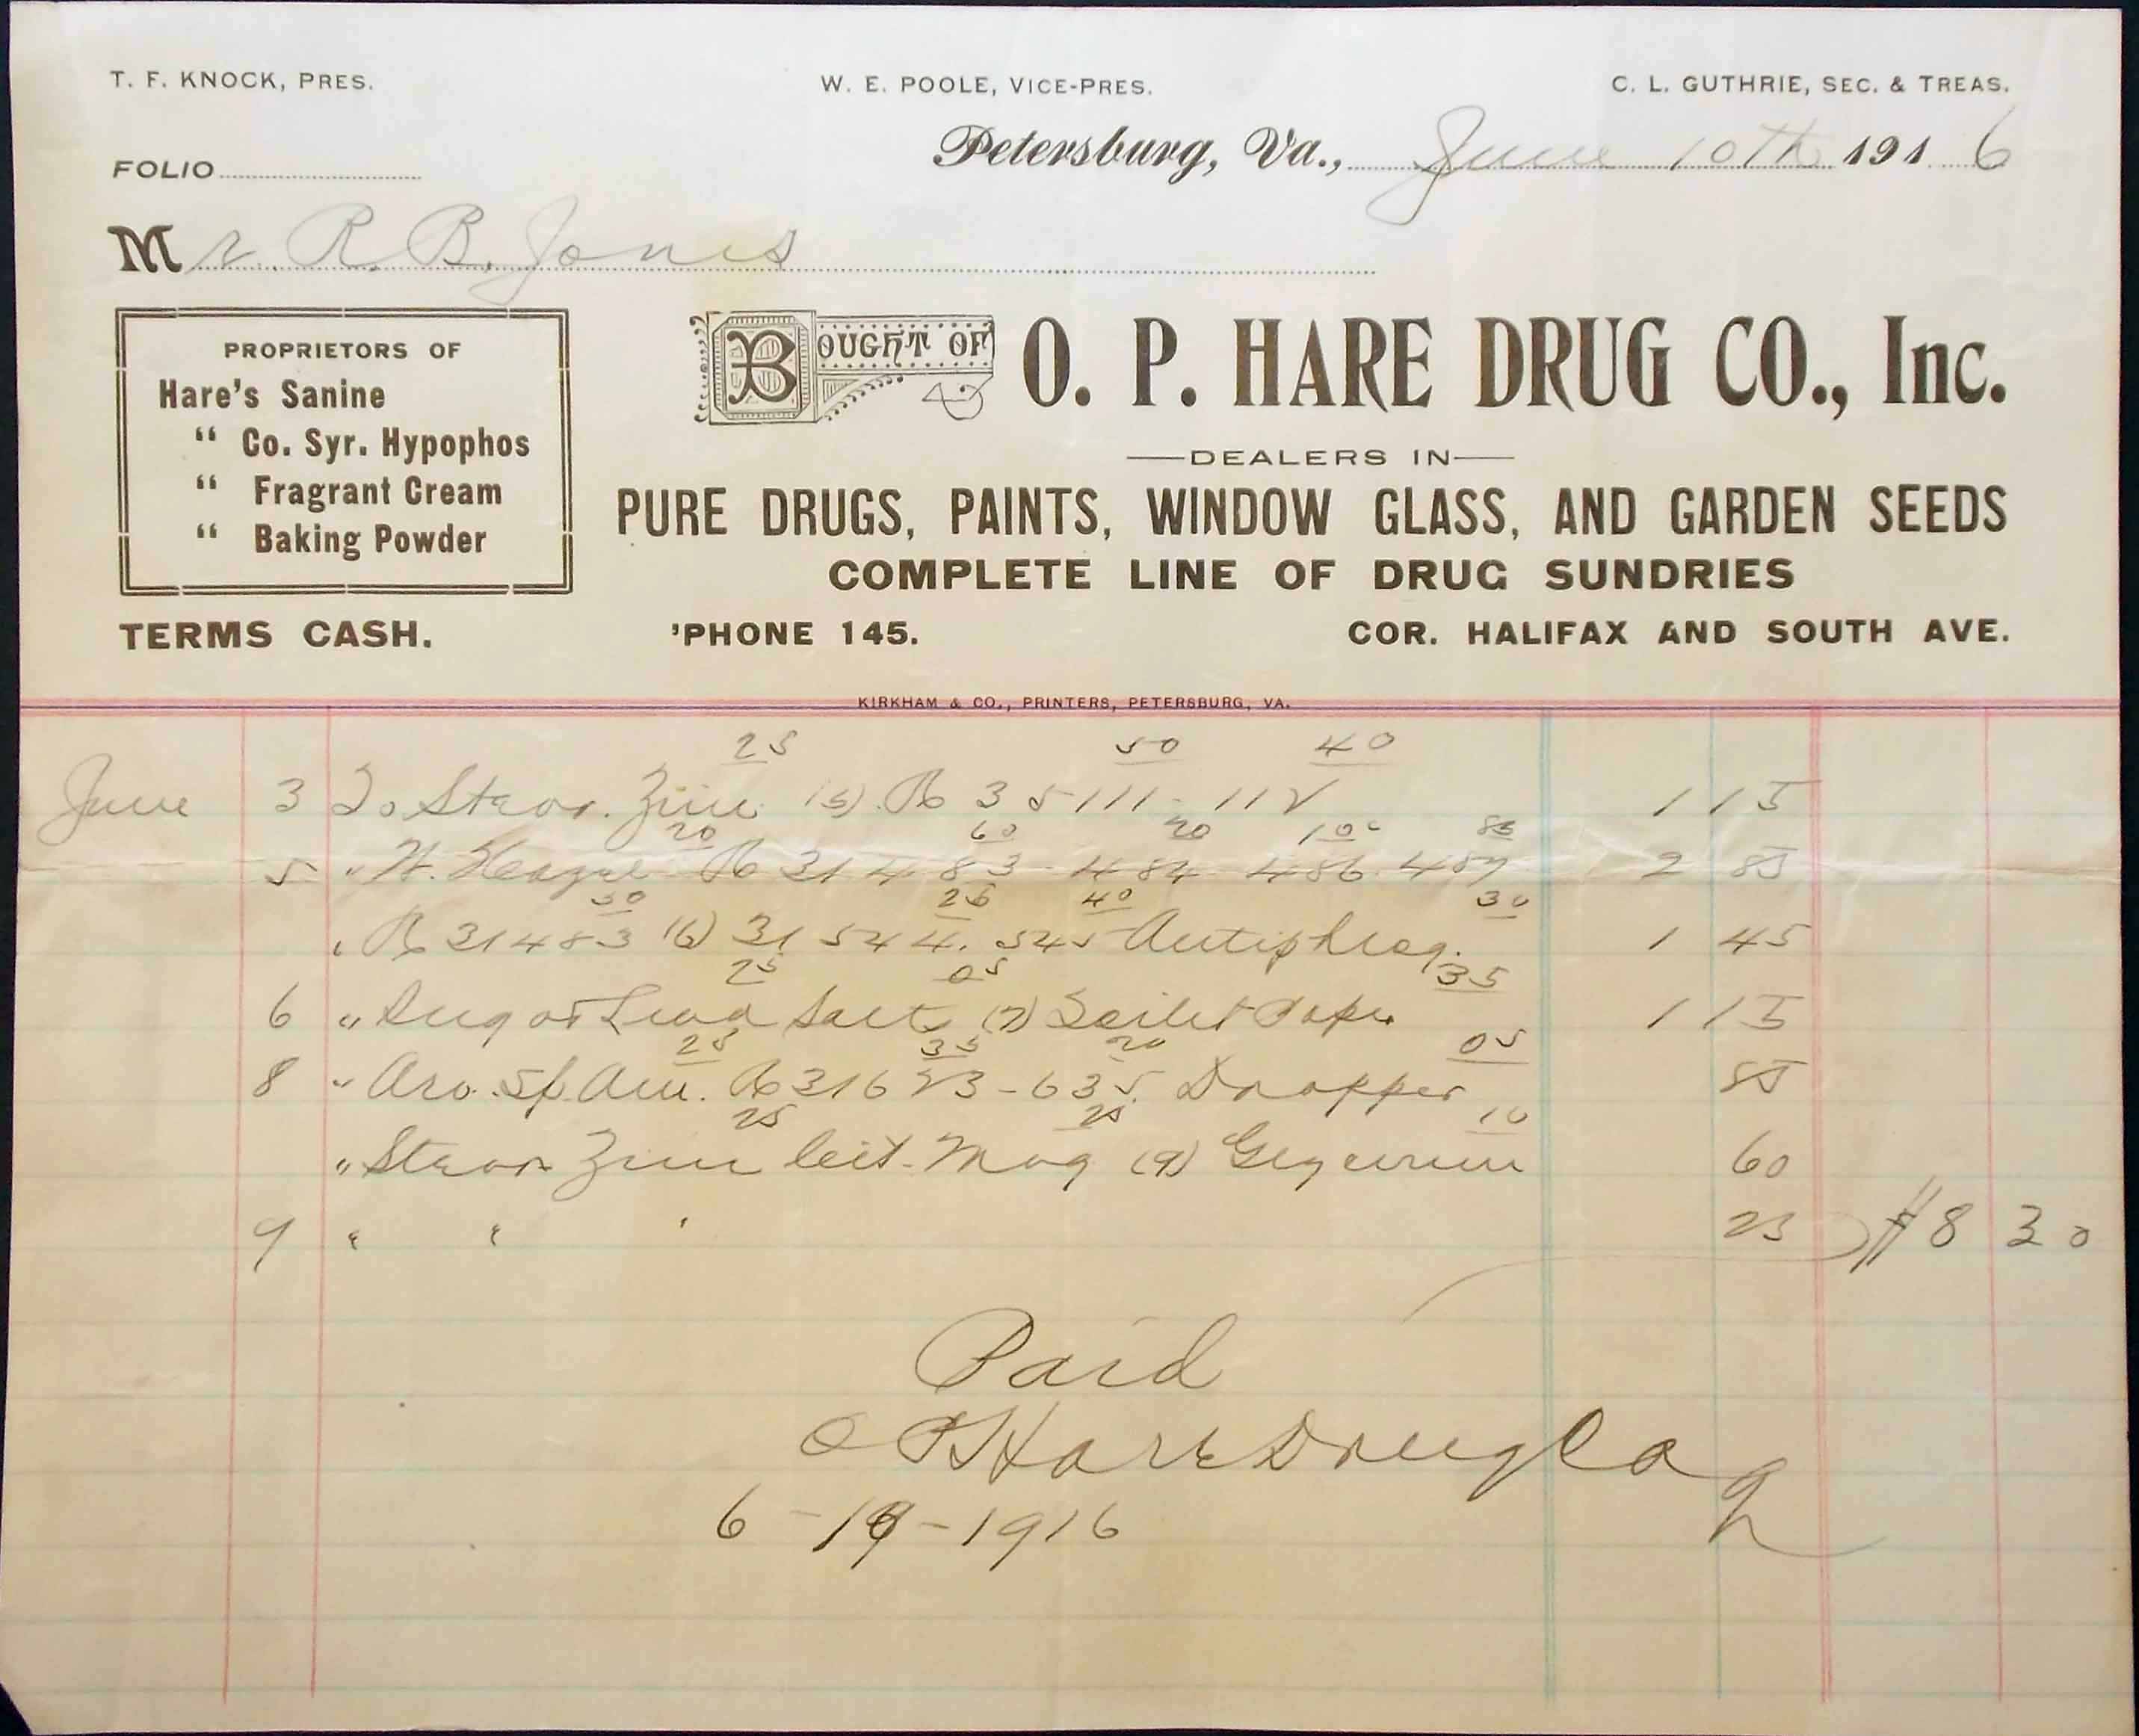 T. F. KNOCK, PRES. W. E. POOLE, VICE-PRES. C. L. GUTHRIE, SEC. & TREAS.
FOLIO Petersburg, Va., June 10th 1916
Mr. R. B. Jones
PROPRIETORS OF
Hare's Sanine
" Co. Syr. Hypophos
" Fragrant Cream
" Baking Powder
BOUGHT OF O. P. HARE DRUG CO., Inc.
DEALERS IN
PURE DRUGS, PAINTS, WINDOW GLASS, AND GARDEN SEEDS
COMPLETE LINE OF DRUG SUNDRIES
TERMS CASH. 'PHONE 145. COR. HALIFAX AND SOUTH AVE.
KIRKHAM & CO., PRINTERS, PETERSBURG, VA.
25 50 40
June 3 To Stear. Zinc (5) ℞ 35111-112 1 15
20 60 20 1 00 85
5 " ℞ 31483-484 486. 487 2 85
50 25 40 30
" ℞ 31483 (6) 31544. 545 Antiphlog. 1 45
25 05 35
6 " Sugar Lead Salts (7) Toilet Paper 1 15
25 35 20 05
8 " Aro. Sp. Am. ℞ 316 - 635. Dropper 85
25 25 10
" Stear Zinc Cit. Mag (9) 60
9 " " " 25 $8 30
Paid
O P Hare Drug Co
6-19-1916